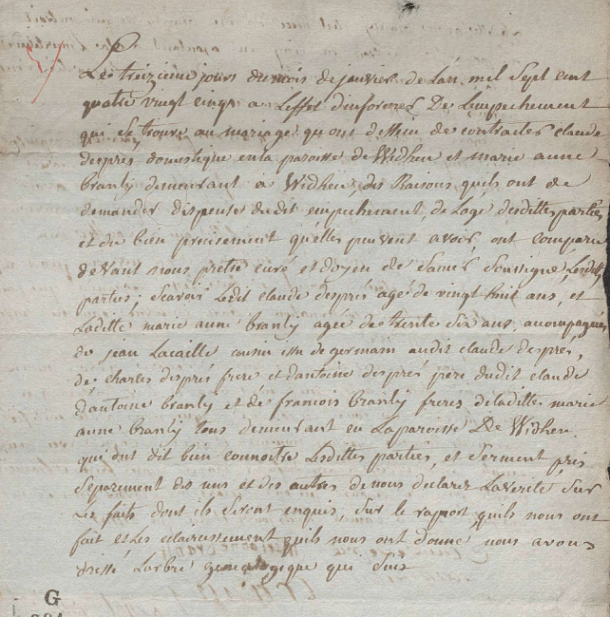 Le treizieme jours du mois de janvier de Lan mil Sept cent
quatre vingt cinq a Leffet dinformer De Lempechement
qui se trouve au mariage qu ont dessein de contracter claude
despres domestique en la paroisse de Widhen et marie anne
branly demeurant à Widhen, des Raisons quils ont de
demander dispense dudit empechement, de Lage desdittes parties
et du bien precisement qu'elles peuvent avoir, ont comparu
devant nous pretre curé et doyen de Samer Soussigné, Lesdittes
parties; scavoir Ledit claude despres agé de vingt huit ans, et
Laditte marie anne branly agée de trente Six ans, accompagnés
de jean Lacaille cousin issu de germain audit claude despres,
de charles després frere et dantoine després père dudit claude
dantoine branly et de francois branly freres deladitte marie
anne branly tous demeurant en Laparoisse De Widhen
qui ont dit bien connoitre Lesdittes parties, et Serment pris
Separement des uns et des autres de nous declarer Laverité Sur
Les faits dont ils Seront enquis, Sur le raport quils nous ont
fait et Les eclaircissement quils nous ont donné nous avons
dressé Larbre genealogique qui Suit
G